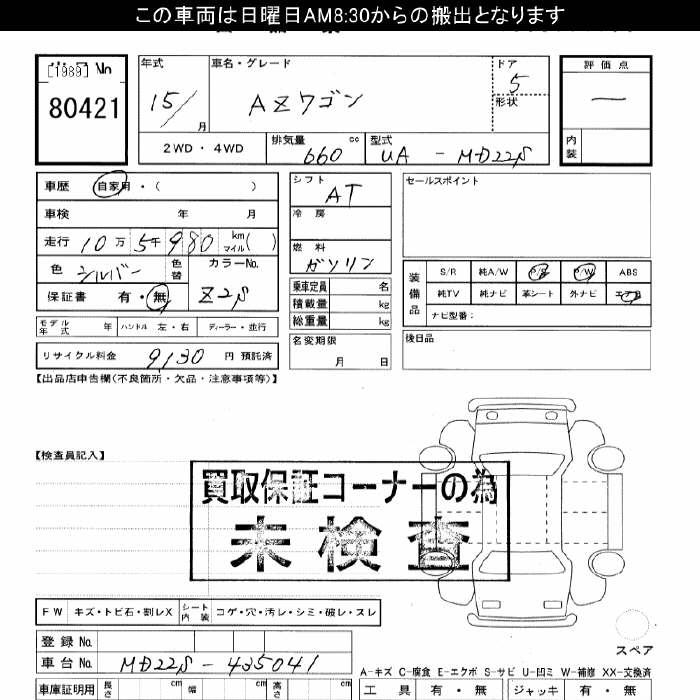 この車両は日曜日AM8:30からの搬出となります
[1989] No
80421
年式 15/ 月
車名・グレード AZワゴン
ドア 5
形状
評価点 —
内装
2WD・4WD
排気量 660 cc
型式 UA - MD22S
車歴 自家用・( )
車検 年 月
走行 10万 5千 980 km マイル( )
色 シルバー 色替
カラーNo. Z2S
保証書 有・無
モデル年式 年 ハンドル 左・右 ディーラー・並行
リサイクル料金 9130 円 預託済
シフト AT
冷房
燃料 ガソリン
乗車定員 名
積載量 kg
総重量 kg
名変期限 月 日
セールスポイント
装備品
S/R 純A/W P/S P/W ABS
純TV 純ナビ 革シート 外ナビ エアB
ナビ型番:
後日品
【出品店申告欄(不良箇所・欠品・注意事項等)】
【検査員記入】
買取保証コーナーの為
未検査
FW キズ・トビ石・割レX シート内装 コゲ・穴・汚レ・シミ・破レ・スレ
スペア
登録No.
車台No. MD22S-435041
A-キズ C-腐食 E-エクボ S-サビ U-凹ミ W-補修 XX-交換済
車庫証明用 長さ cm 幅 cm 高さ cm
工具 有・無 ジャッキ 有・無